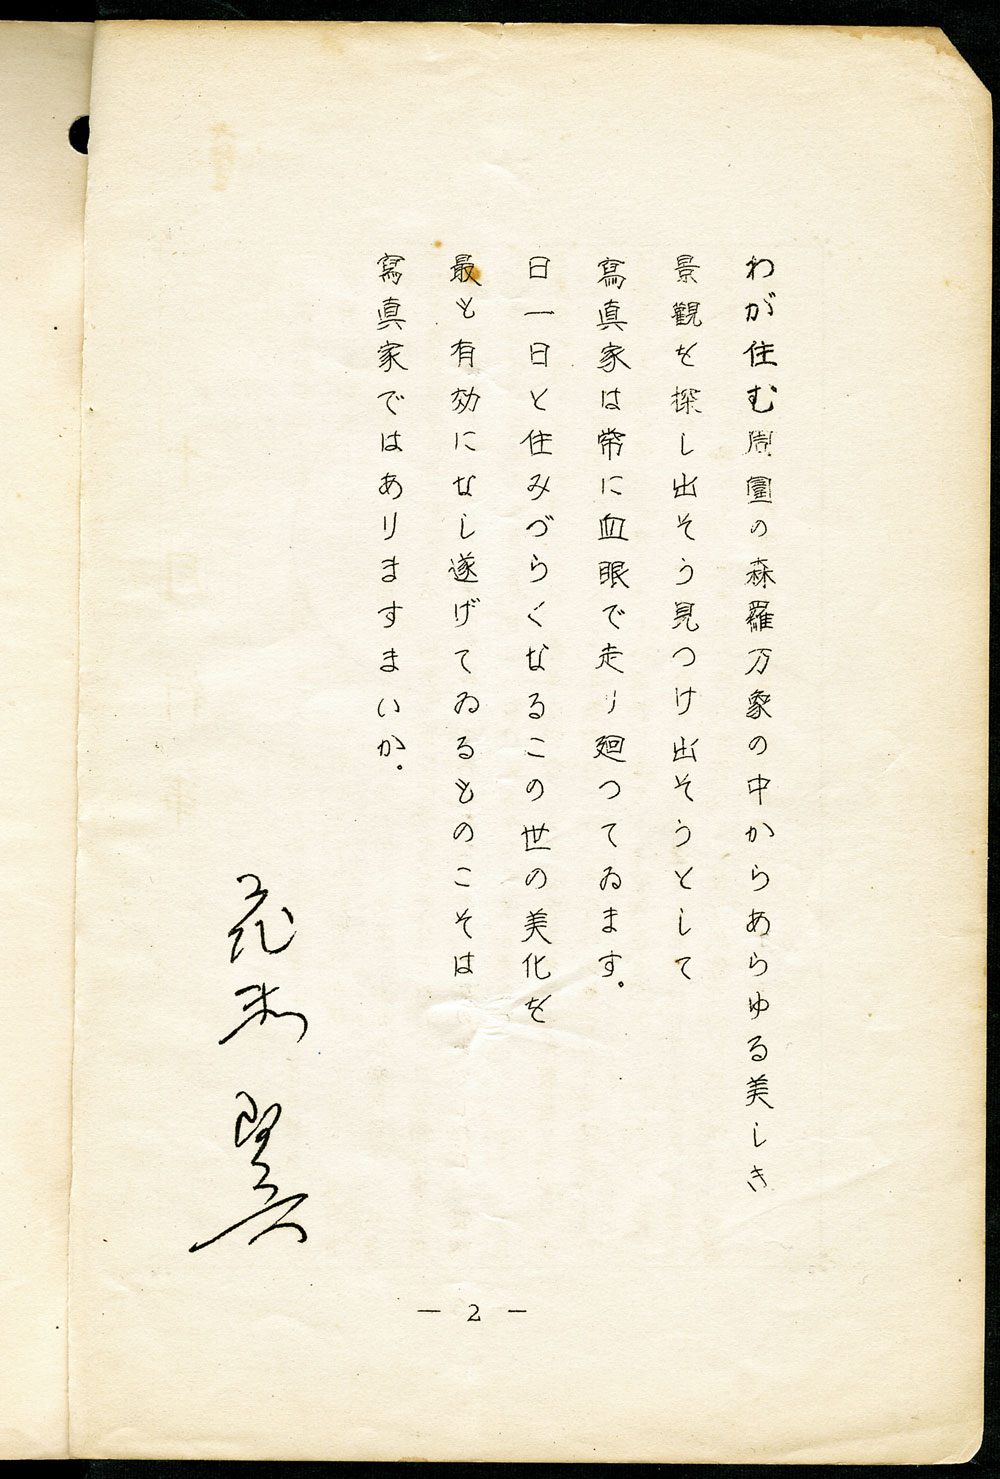 わが住む周圍の森羅万象の中からあらゆる美しき
景觀を探し出そう見つけ出そうとして
寫真家は常に血眼で走り廻つてゐます。
日一日と住みづらくなるこの世の美化を
最も有効になし遂げてゐるものこそは
寫真家ではありますまいか。
— 2 —